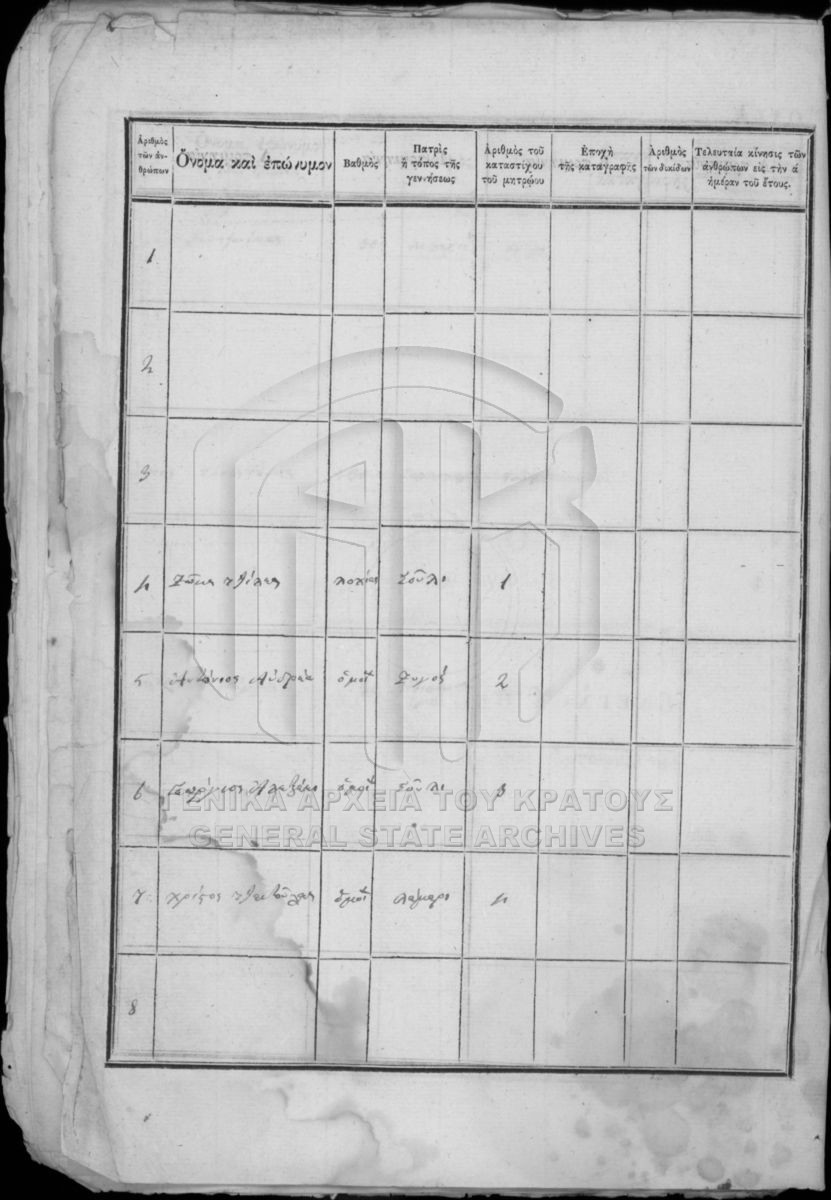 Ἀριθμὸς τῶν ἀν-θρώπων | Ὄνομα καὶ ἐπώνυμον | Βαθμὸς | Πατρὶς ἢ τόπος τῆς γεννήσεως | Ἀριθμὸς τοῦ καταστίχου τοῦ μητρῴου | Ἐποχὴ τῆς καταγραφῆς | Ἀριθμὸς τῶν δικίδων | Τελευταία κίνησις τῶν ἀνθρώπων εἰς τὴν ά ἡμέραν τοῦ ἔτους.
1
2
3
4 | Σοῦλι | 1
5 | Ἀντώνιος | ὁμοῖ | 2
6 | Γεώργιος | ὁμοῖ | Σοῦλι | 3
7 | Χρίστος | ὁμοῖ | 4
8
ΓΕΝΙΚΑ ΑΡΧΕΙΑ ΤΟΥ ΚΡΑΤΟΥΣ
GENERAL STATE ARCHIVES